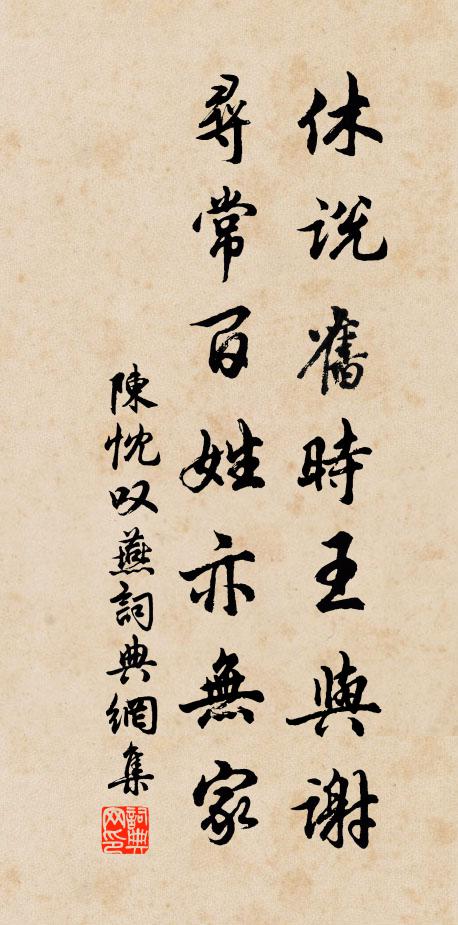 休説舊時王與謝
尋常百姓亦無家
陳忱叹燕詞典網集
詞典网印